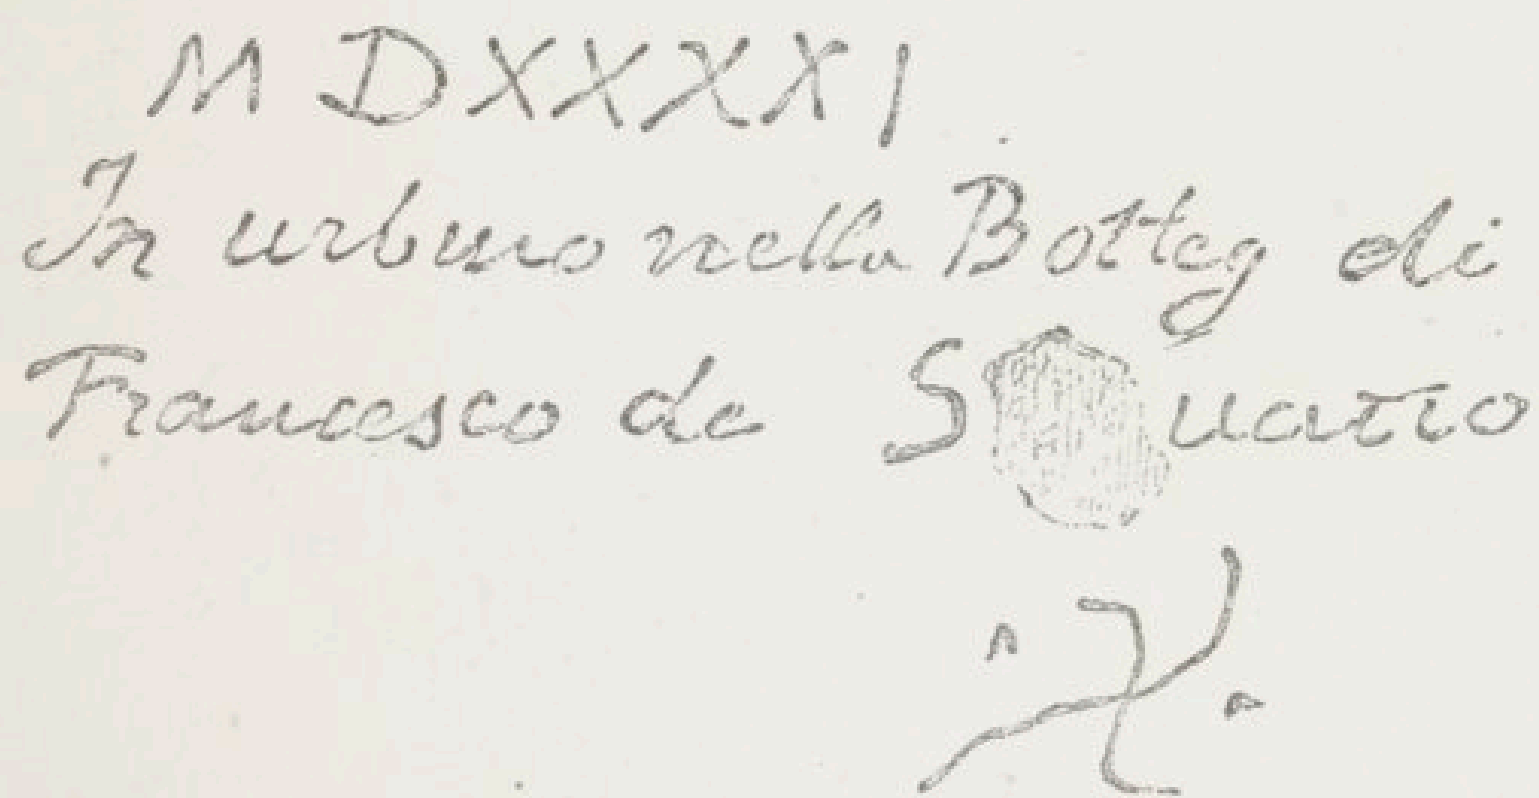 MDXXXXI
In urbino nella Botteg di
Francesco de
X